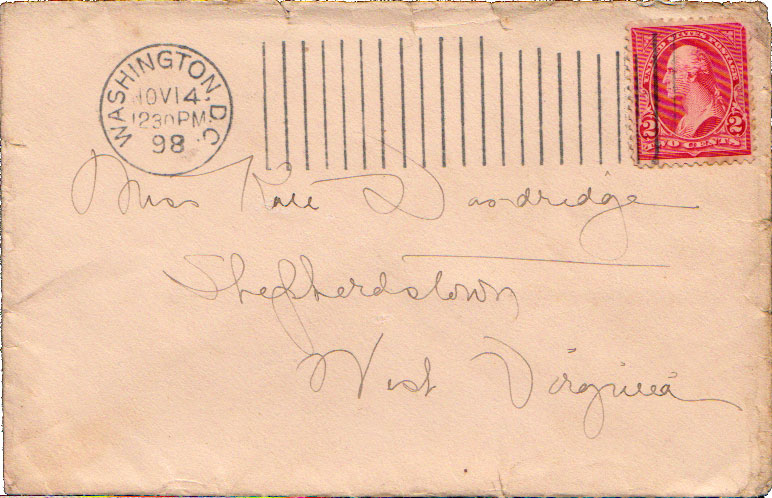 WASHINGTON, D.C.
NOV 14
1230 PM
98
UNITED STATES POSTAGE
2 2
TWO CENTS
Miss
Shepherdstown
West Virginia